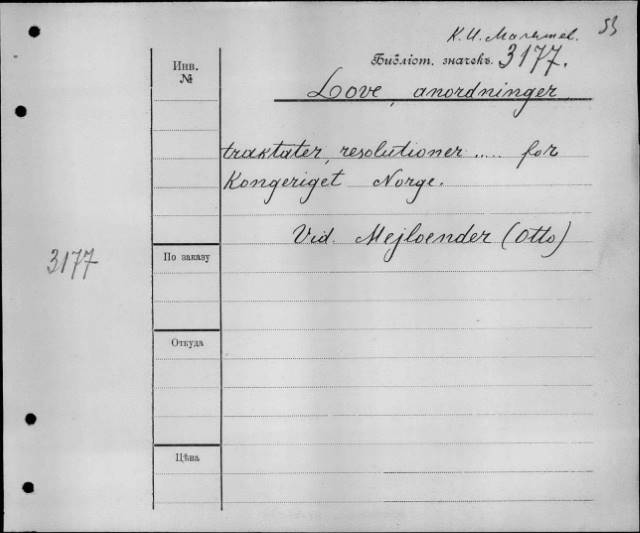 53
К. И. Малышев.
Библіот. значекъ. 3177.
Инв.
№
Love, anordninger
traktater, resolutioner ..... for
Kongeriget Norge.
Vid. Mejloender (Otto)
3177
По заказу
Откуда
Цѣна